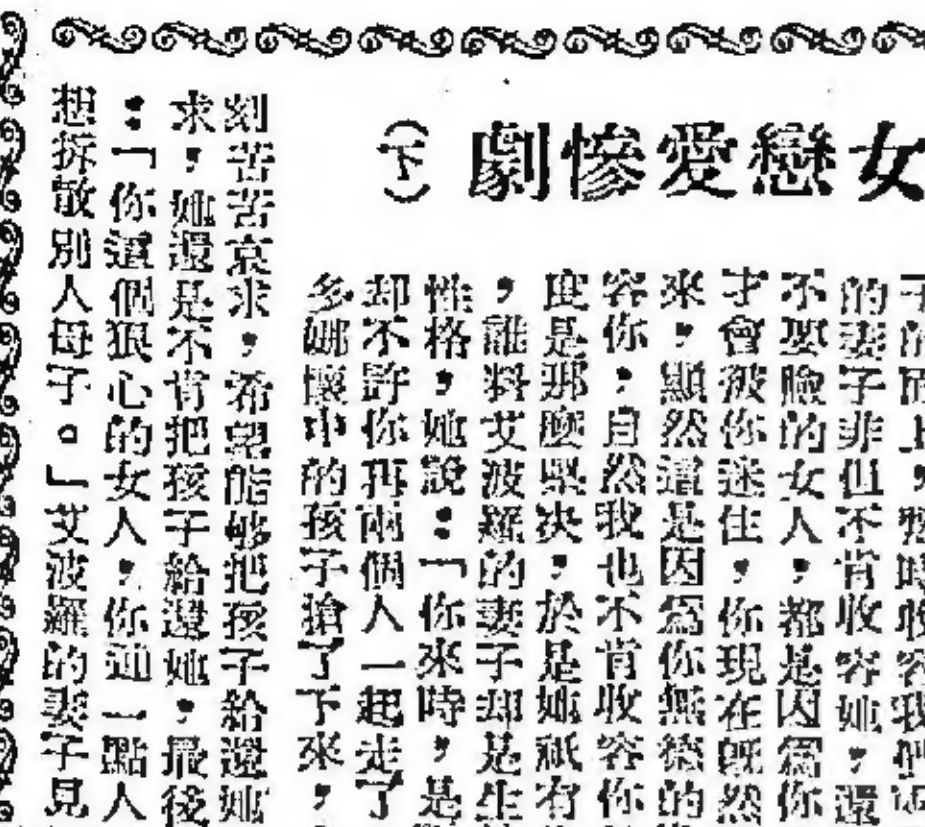 女戀愛慘劇(下)
子的面上,暫時收容我們
的妻子非但不肯收容她,還
不要臉的女人,都是因爲你
才會被你迷住,你現在既然
來,顯然這是因爲你無的
容你,自然我也不肯收容你
度是那麼堅決,於是她祇有
,誰料艾波羅的妻子却是生
性格,她說:「你來時,是
却不許你再兩個人一起走了
多娜懷中的孩子搶了下來,
刻苦苦哀求,希望能够把孩子給還她
求,她還是不肯把孩子給還她,最後
:「你這個狠心的女人,你連一點人
想拆散別人母子。」艾波羅的妻子見